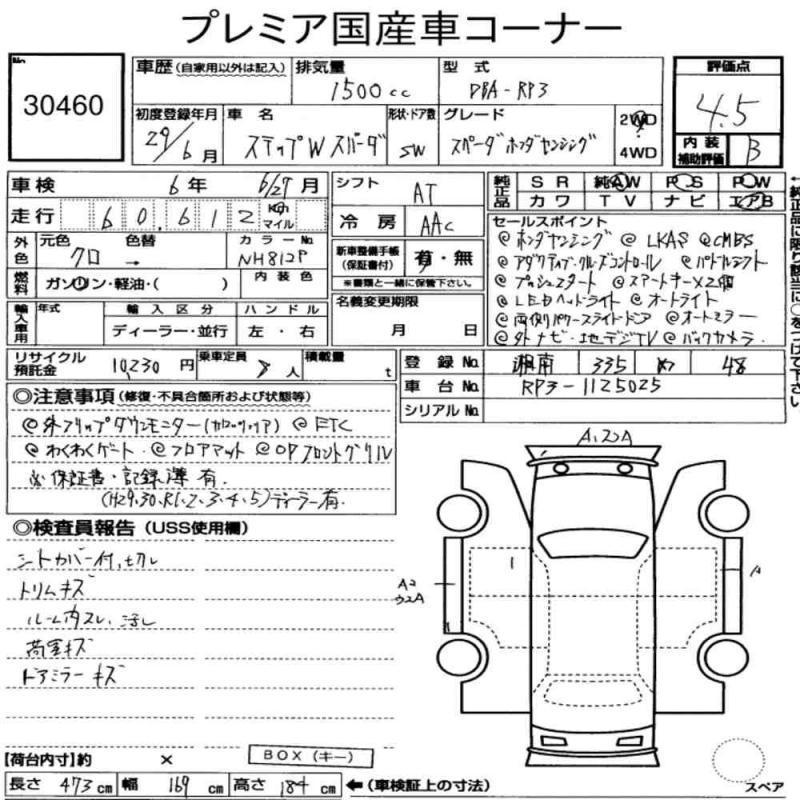 プレミア国産車コーナー
No. 30460
車歴 (自家用以外は記入) 排気量 1500cc 型式 DBA-RP3 評価点 4.5
初度登録年月 29/6月 車名 ステップW スパーダ 形状・ドア数 SW グレード スパーダ ホンダセンシング 2WD 4WD 内装補助評価 B
車検 6年 6/27月 シフト AT 純正品 SR 純AW PS PW
走行 60,612 Km マイル 冷房 AAC カワ TV ナビ エアB
外色 元色 クロ 色替 → カラーNo. NH812P 新車整備手帳 (保証書付) 有・無 ※書類と一緒に保管下さい。
燃料 ガソリン・軽油・( ) 内装色
セールスポイント
@ホンダセンシング @LKAS @CMBS
@アダクティブ・クルーズコントロール @パドルシフト
@プッシュスタート @スマートキー×2個
@LEDヘッドライト @オートライト
@両側パワースライドドア @オートミラー
@外ナビ・地デジTV @バックカメラ
輸入車用 年式 輸入区分 ディーラー・並行 ハンドル 左・右 名義変更期限 月 日
リサイクル預託金 10,230円 乗車定員 人 積載量 t 登録No. 湘南 335 48
車台No. RP3-1125025
シリアルNo.
◎注意事項 (修復・不具合箇所および状態等)
@外フリップダウンモニター @ETC
@わくわくゲート @フロアマット @OPフロントグリル
※保証書・記録簿 有
(H29.30.R1.2.3.4.5)ディーラー有
◎検査員報告 (USS使用欄)
シートカバー付、切れ
トリムキズ
ルーム内スレ、汚れ
荷室キズ
ドアミラーキズ
A1
A2
A
【荷台内寸】約 × BOX(キー)
長さ 473cm 幅 169cm 高さ 184cm ←(車検証上の寸法)
スペア
←純正品に限り該当に○をつけて下さい